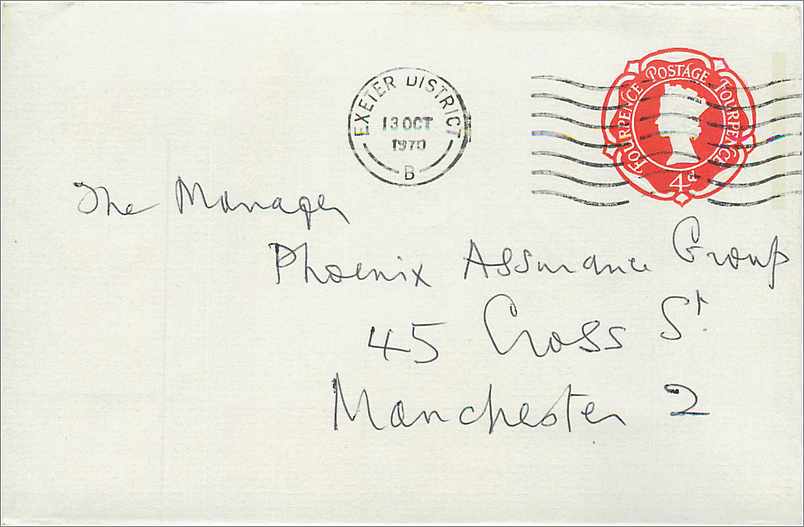 EXETER DISTRICT
13 OCT
1970
B
FOURPENCE POSTAGE FOURPENCE
4d
The Manager
Phoenix Assurance Group
45 Cross St.
Manchester 2